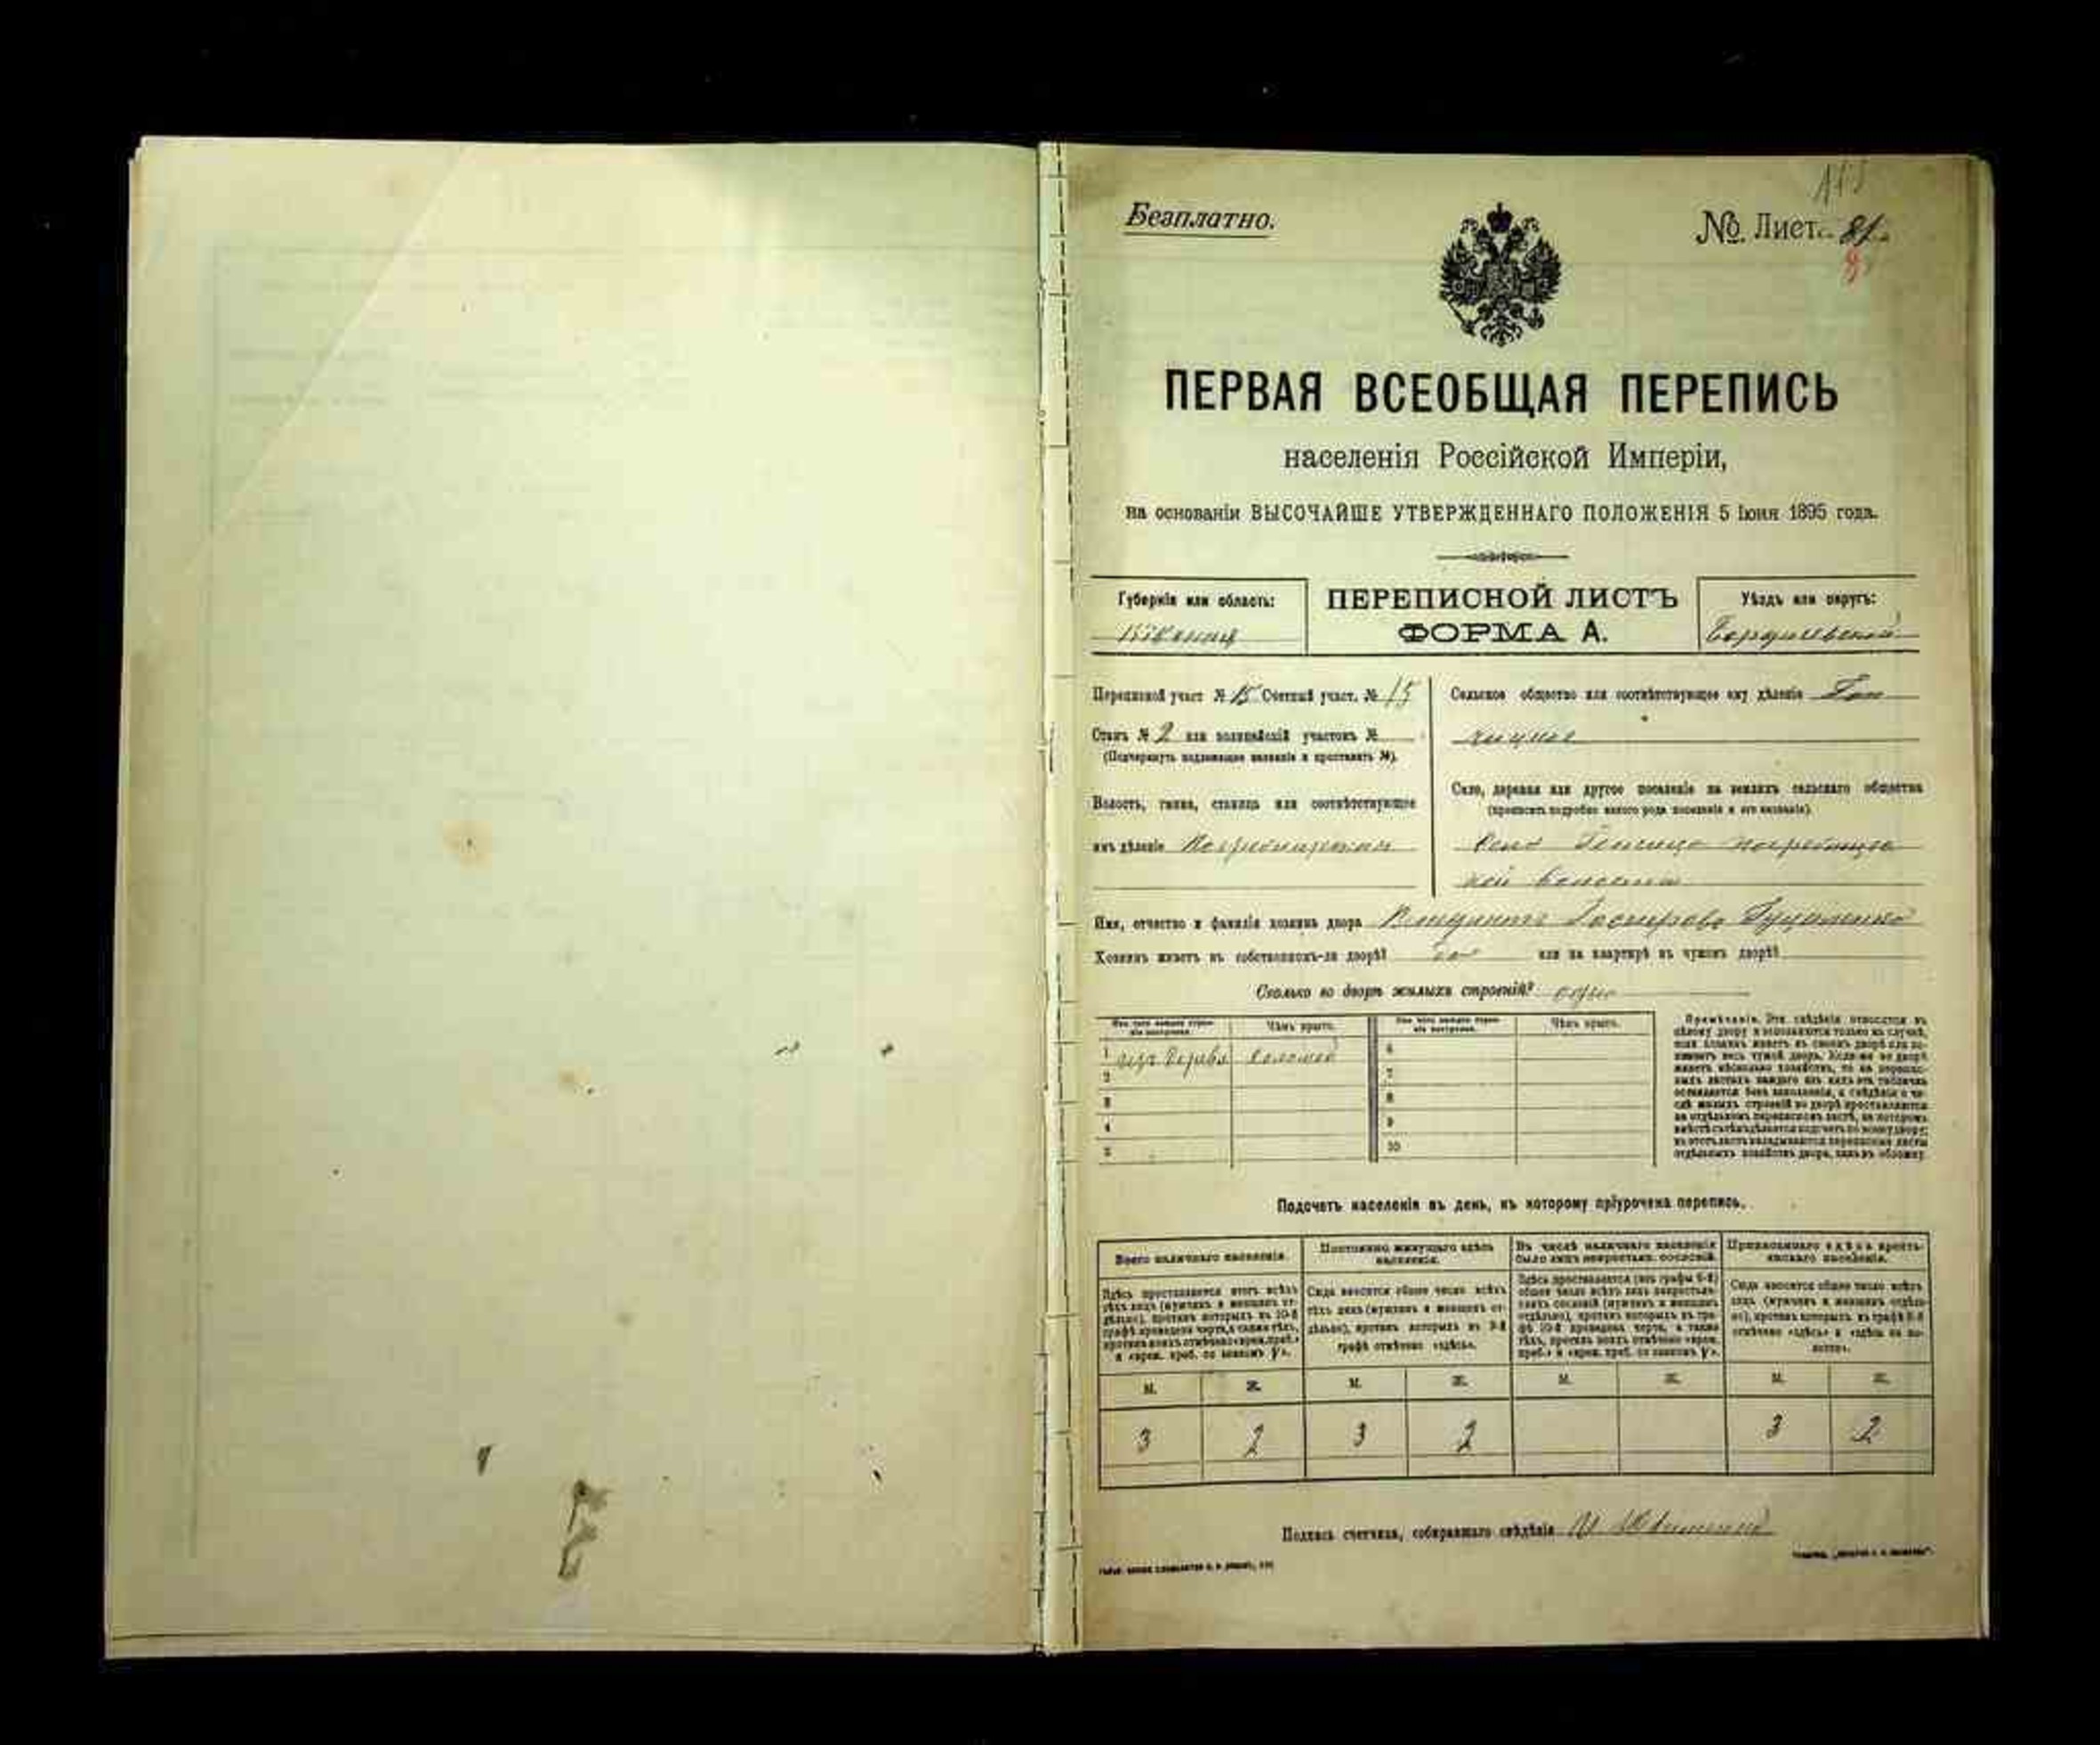 Безплатно.
№ Лист. 81
ПЕРВАЯ ВСЕОБЩАЯ ПЕРЕПИСЬ
населенія Россійской Имперіи,
на основаніи ВЫСОЧАЙШЕ УТВЕРЖДЕННАГО ПОЛОЖЕНІЯ 5 Іюня 1895 года.
Губернія или область:
ПЕРЕПИСНОЙ ЛИСТЪ
ФОРМА А.
Уѣздъ или округъ:
Кіевская
Бердичевскій
Переписной участ № 15 Счетный участ. № 15
Станъ № 2 или полицейскій участокъ №
(Подчеркнуть подлежащее названіе и проставить №).
Волость, гмина, станица или соотвѣтствующее
имъ дѣленіе
Сельское общество или соотвѣтствующее ему дѣленіе
Село, деревня или другое поселеніе на земляхъ сельскаго общества
(прописать подробно какого рода поселеніе и его названіе).
Село
кой волости
Имя, отчество и фамилія хозяина двора
Хозяинъ живетъ въ собственномъ-ли дворѣ? да или на квартирѣ въ чужомъ дворѣ?
Сколько во дворѣ жилыхъ строеній? одно
Изъ чего каждое строеніе построено. Чѣмъ крыто. Изъ чего каждое строеніе построено. Чѣмъ крыто.
1 изъ дерева соломой 6
2 7
3 8
4 9
5 10
Примѣчаніе. Эти свѣдѣнія относятся къ
цѣлому двору и заполняются только въ случаѣ,
если хозяинъ живетъ въ своемъ дворѣ или за-
нимаетъ весь чужой дворъ. Если-же во дворѣ
живетъ нѣсколько хозяйствъ, то на перепис-
ныхъ листахъ каждаго изъ нихъ эта табличка
оставляется безъ заполненія, а свѣдѣнія о чи-
слѣ жилыхъ строеній во дворѣ проставляются
на отдѣльномъ переписномъ листѣ, на которомъ
вмѣстѣ съ тѣмъ дѣлается подсчетъ по всему двору;
въ этотъ листъ вкладываются переписные листы
отдѣльныхъ хозяйствъ двора, какъ въ обложку.
Подсчетъ населенія въ день, къ которому пріурочена перепись.
Всего наличнаго населенія.
Постоянно живущаго здѣсь населенія.
Въ числѣ наличнаго населенія было лицъ некрестьян. сословій.
Приписаннаго здѣсь крестьянскаго населенія.
Здѣсь проставляется итогъ всѣхъ
тѣхъ лицъ (мужчинъ и женщинъ от-
дѣльно), противъ которыхъ въ 10-й
графѣ проведена черта, а также тѣхъ,
противъ коихъ отмѣчено «врем. преб.»
и «врем. преб. со знакомъ V».
Сюда вносится общее число всѣхъ
тѣхъ лицъ (мужчинъ и женщинъ от-
дѣльно), противъ которыхъ въ 9-й
графѣ отмѣчено «здѣсь».
Здѣсь проставляется (изъ графы 6-й)
общее число всѣхъ лицъ некрестьян-
скихъ сословій (мужчинъ и женщинъ
отдѣльно), противъ которыхъ въ гра-
фѣ 10-й проведена черта, а также
тѣхъ, противъ коихъ отмѣчено «врем.
преб.» и «врем. преб. со знакомъ V».
Сюда вносится общее число всѣхъ
лицъ (мужчинъ и женщинъ отдѣль-
но), противъ которыхъ въ графѣ 8-й
отмѣчено «здѣсь» и
М. Ж. М. Ж. М. Ж. М. Ж.
3 2 3 2 3 2
Подпись счетчика, собиравшаго свѣдѣнія